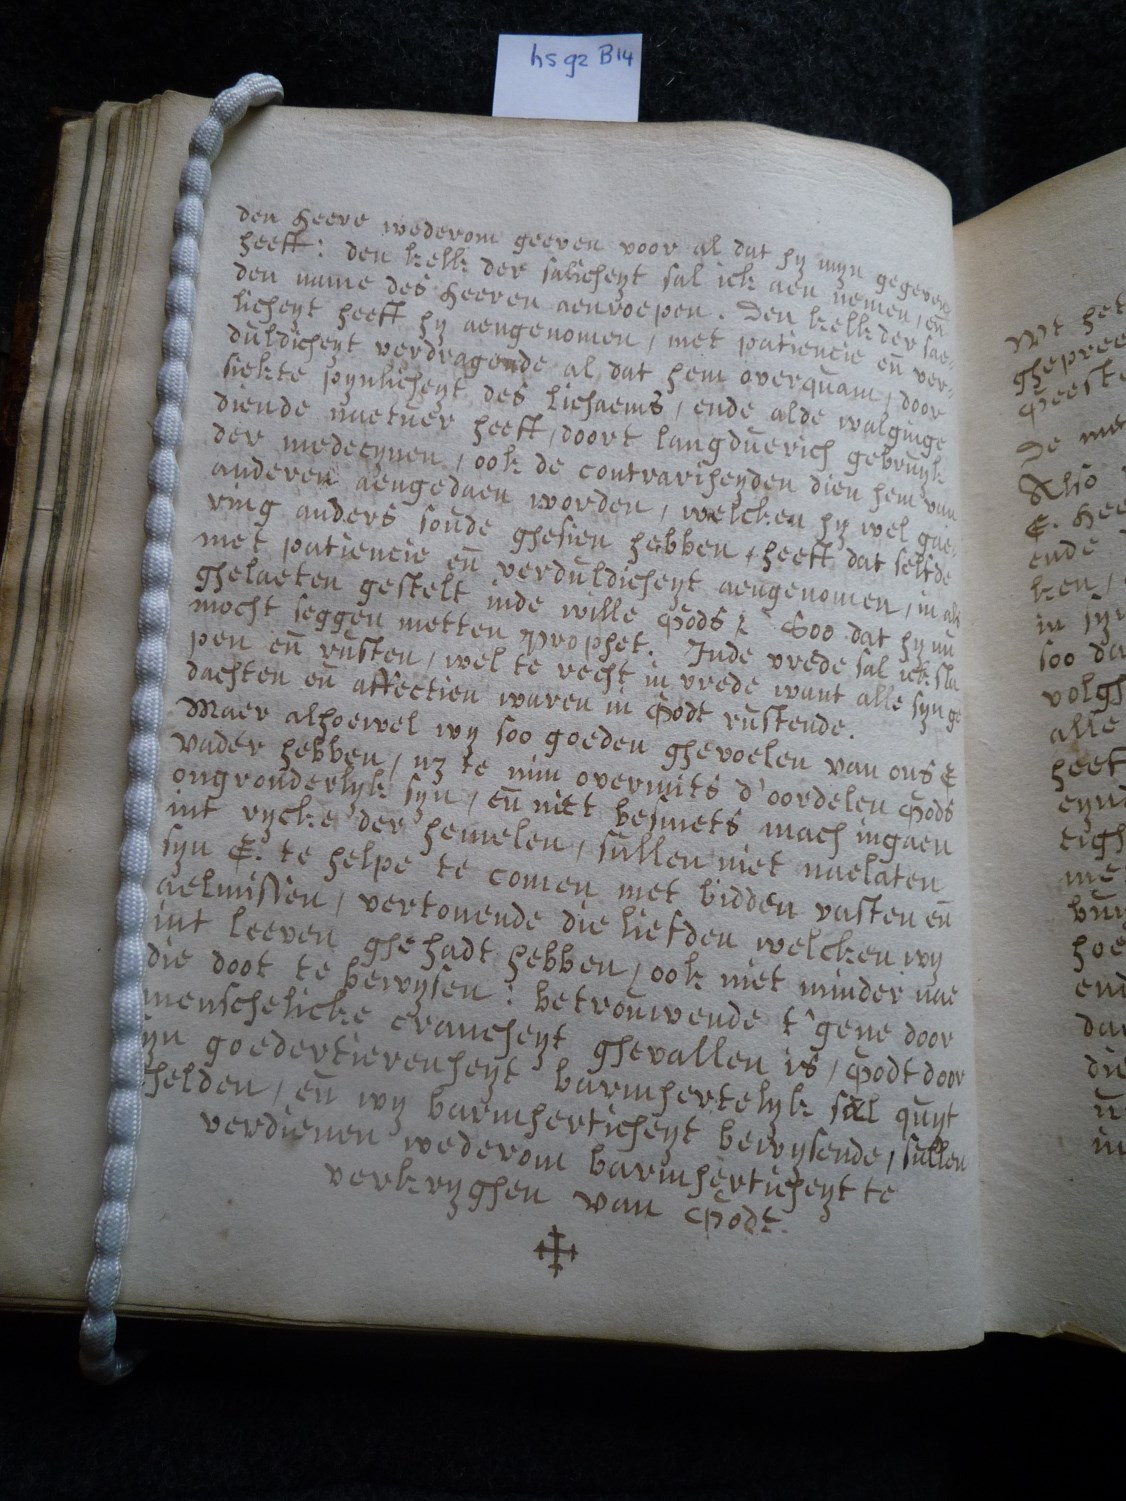 hs gz B14
den Heere wederom geeven voor al dat hy myn gegeven
heeft: den kelk der salicheyt sal ick aen nemen, en̄
den name des Heeren aenroepen. Den kelk der sae-
licheyt heeft hy aengenomen, met patiencie en̄ ver-
duldicheyt verdragende al dat hem overquam, door
siekte pynlicheyt des lichaems, ende alde walginge
diende natuer heeft, doort langduerich gebruyk
der medecynen, ook de contrariheyden dien hem van
anderen aengedaen worden, welcken hy wel gae-
ring anders soude ghesien hebben, heeft dat selfde
met patiencie en̄ verduldicheyt aengenomen, in als
ghelaeten gestelt inde wille Godts; Soo dat hy nu
mocht seggen metten Prophet. Inde vrede sal ick sla
pen en̄ rusten, wel te recht in vrede want alle syn ge
dachten en̄ affectien waren in Godt rustende.
Maer alhoewel wy soo goeden ghevoelen van ons E
vader hebben, nz te min overmits d'oordelen Godts
ongronderlyk syn, en̄ niet besmets mach ingaen
int rycke der hemelen, sullen niet naelaten
syn E. te helpe te comen met bidden vasten en̄
aelmissen, vertonende die liefden welcken wy
int leeven ghehadt hebben, ook niet minder nae
die doot te bewysen: betrouwende t'gene door
menschelicke crancheyt ghevallen is, Godt door
yn goedertierenheyt barmhertelyk sal quyt
helden, en̄ wy barmherticheyt bewysende, sullen
verdienen wederom barmherticheyt te
verkryghen van Godt.
Wt het
ghepree
Geeste
De
Also
E. Hee
ende
ken,
in syn
soo da
volgh
alle
heeft
eynd
eigh
me
hoe
end
dar
die
in